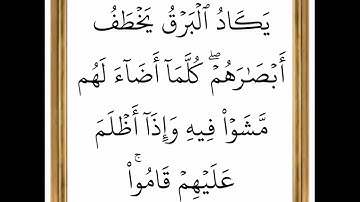 يَكَادُ ٱلْبَرْقُ يَخْطَفُ
أَبْصَـٰرَهُمْ ۖ كُلَّمَآ أَضَآءَ لَهُم
مَّشَوْا۟ فِيهِ وَإِذَآ أَظْلَمَ
عَلَيْهِمْ قَامُوا۟ ۚ